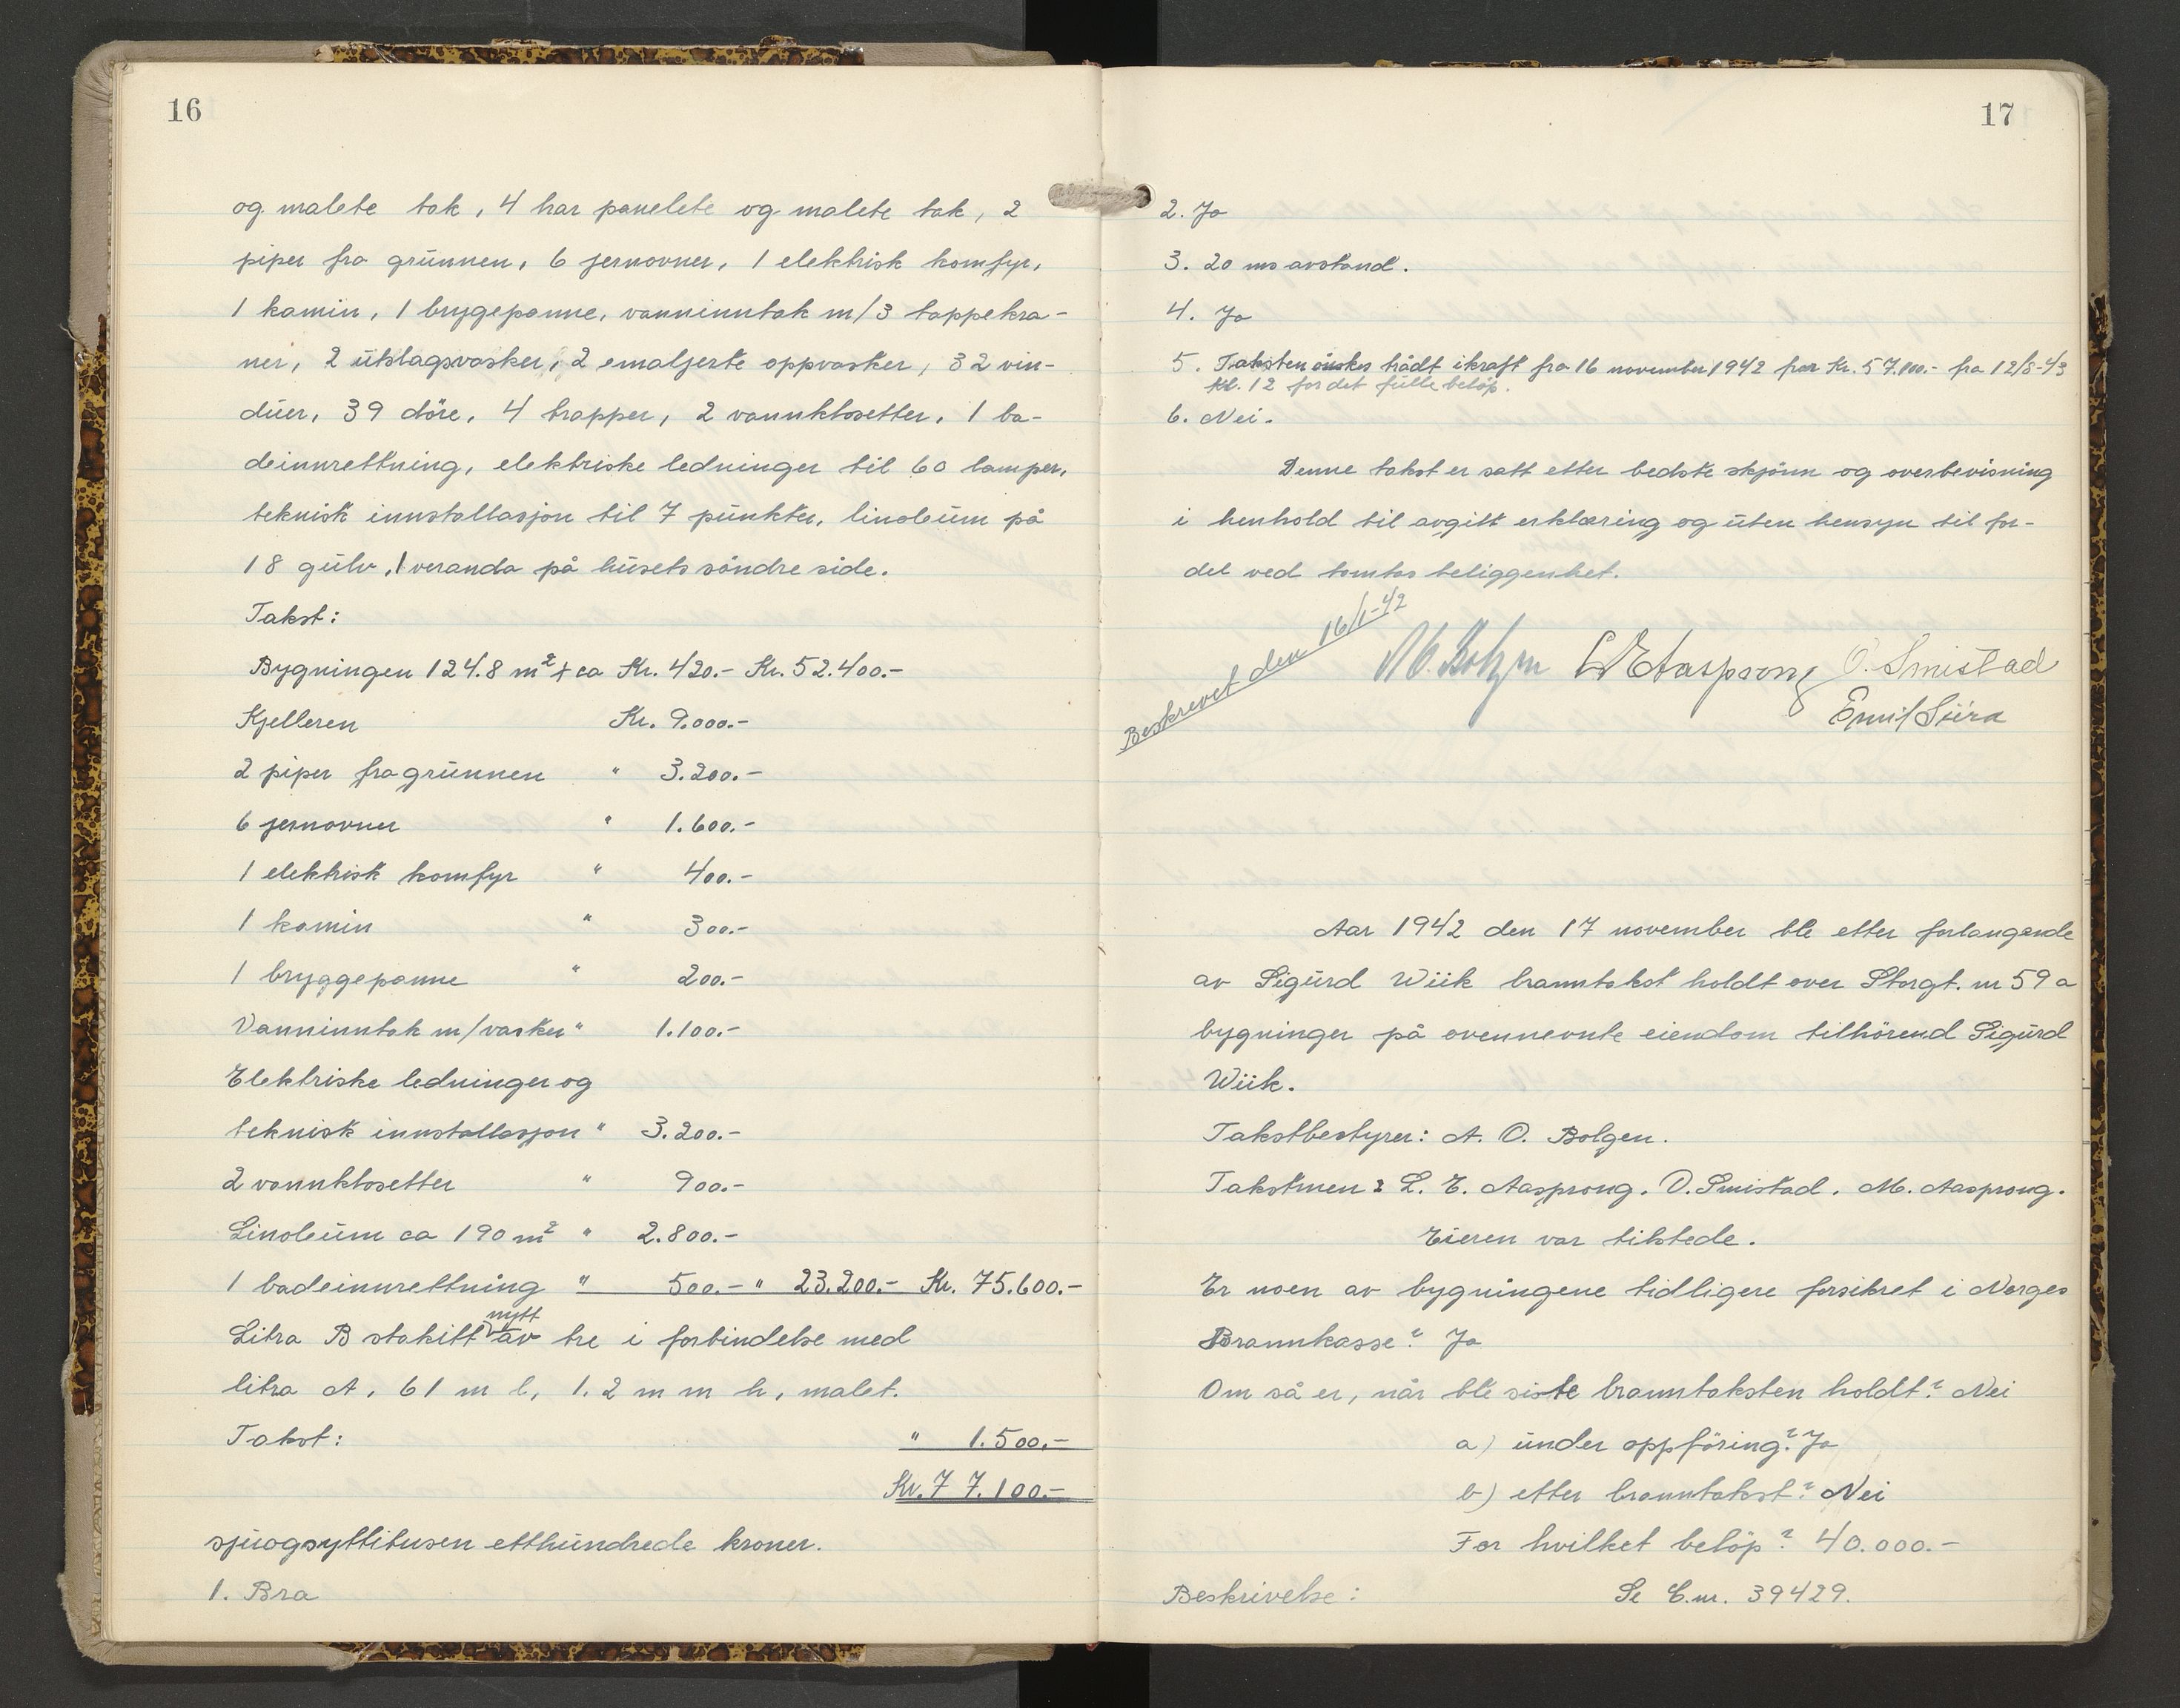 16
og malete tak, 4 har panelete og malete tak, 2
piper fra grunnen, 6 jernovner, 1 elektrisk komfyr,
1 kamin, 1 brygepanne, vanninntak m/3 tappekra-
ner, 2 utslagsvasker, 2 emaljerte oppvasker, 32 vin-
duer, 39 döre, 4 trapper, 2 vannklosetter, 1 ba-
deinnrettning, elektriske ledninger til 60 lamper,
teknisk innstallasjon til 7 punkter, linoleum på
18 gulv, 1 veranda på husets söndre side.
Takst:
Bygningen 124.8 m² x ca Kr. 420.- Kr. 52.400.-
Kjelleren Kr. 9.000.-
2 piper fra grunnen " 3.200.-
6 jernovner " 1.600.-
1 elektrisk komfyr " 400.-
1 kamin " 300.-
1 bryggepanne " 200.-
Vanninntak m/vasker " 1.100.-
Elektriske ledninger og
teknisk innstallasjon " 3.200.-
2 vannklosetter " 900.-
Linoleum ca 190 m² " 2.800.-
1 badeinnrettning " 500.- " 23.200.- Kr. 75.600.-
Litra B stakitt nytt av tre i forbindelse med
litra A, 61 m l, 1.2 m m h, malet.
Takst: " 1.500.-
Kr. 77.100.-
sjuogsyttitusen etthundrede kroner.
1. Bra
17
2. Ja
3. 20 ms avstand.
4. Ja
5. Taksten önskes trådt ikraft fra 16 november 1942 for Kr. 57.100.- fra 12/8-43
kl. 12 for det fulle belöp.
6. Nei.
Denne takst er satt etter bedste skjönn og overbevisning
i henhold til avgitt erklæring og uten hensyn til for-
del ved tomtas beliggenhet.
Beskrevet den 16/1-42
L E Aasprong O. Smistad
Emil Süra
Aar 1942 den 17 november ble etter forlangende
av Sigurd Wiik branntakst holdt over Storgt. nr 59 a
bygninger på ovennevnte eiendom tilhörend Sigurd
Wiik.
Takstbestyrer: A. O. Bolgen.
Takstmen: L. E. Aasprong. O. Smistad. M. Aasprong.
Eieren var tilstede.
Er noen av bygningene tidligere forsikret i Norges
Brannkasse? Ja
Om så er, når ble siste branntaksten holdt? Nei
a) under oppföring? Ja
b) etter branntakst? Nei
For hvilket belöp? 40.000.-
Beskrivelse: Se E.nr. 39429.